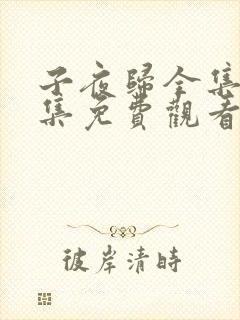 子夜歸全集
集免費觀看
彼岸清時